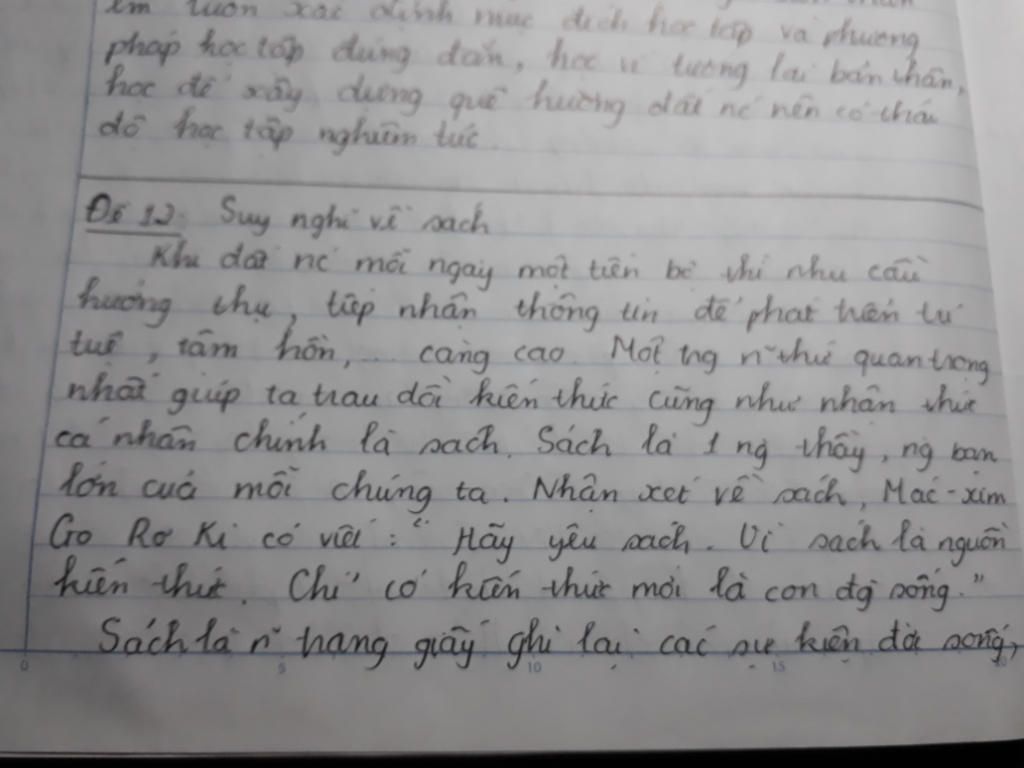 em luôn xác định mục đích học tập và phương
pháp học tập đúng đắn, học vì tương lai bản thân,
học để xây dựng quê hương đất nc nên có thái
độ học tập nghiêm túc
Đề 12: Suy nghĩ về sách
Khi đất nc mỗi ngày một tiến bộ thì nhu cầu
hưởng thụ, tiếp nhận thông tin để phát triển trí
tuệ, tâm hồn,... càng cao. Một tng n~ thứ quan trọng
nhất giúp ta trau dồi kiến thức cũng như nhân thức
cá nhân chính là sách. Sách là 1 ng thầy, ng bạn
lớn của mỗi chúng ta. Nhận xét về sách, Mác-xim
Go Rơ Ki có viết: "Hãy yêu sách. Vì sách là nguồn
kiến thức. Chỉ có kiến thức mới là con đg sống."
Sách là n~ trang giấy ghi lại các sự kiện đời sống,
0 5 10 15